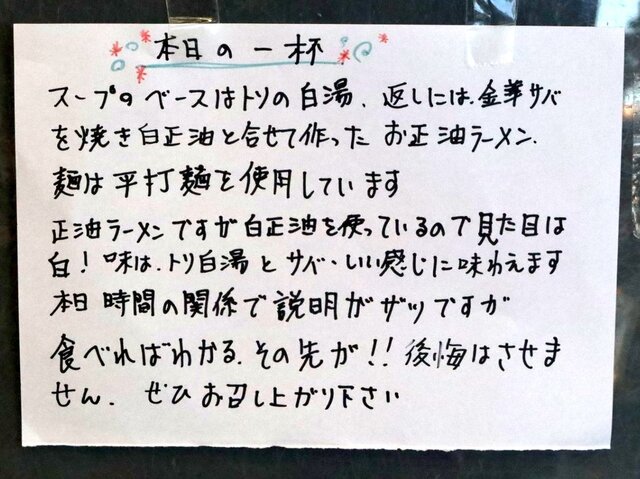 本日の一杯
スープのベースはトリの白湯、返しには、金華サバ
を焼き白正油と合せて作ったお正油ラーメン、
麺は平打麺を使用しています
正油ラーメンですが白正油を使っているので見た目は
白！味は、トリ白湯とサバ、いい感じに味わえます
本日時間の関係で説明がザツですが
食べればわかる、その先が!!後悔はさせま
せん、ぜひお召し上がり下さい